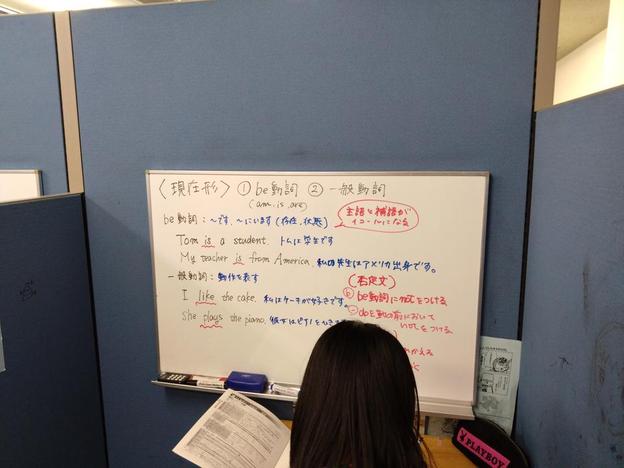 〈現在形〉 ① be動詞 ② 一般動詞
(am. is. are)
be動詞：～です、～にいます(存在、状態)
主語と補語が
イコールになる
Tom is a student. トムは学生です
My teacher is from America. 私の先生はアメリカ出身である。
一般動詞：動作を表す
(否定文)
I like the cake. 私はケーキが好きです。
be動詞にnotをつける
She plays the piano. 彼女はピアノを
の前において
つける
かえる
PLAYBOY